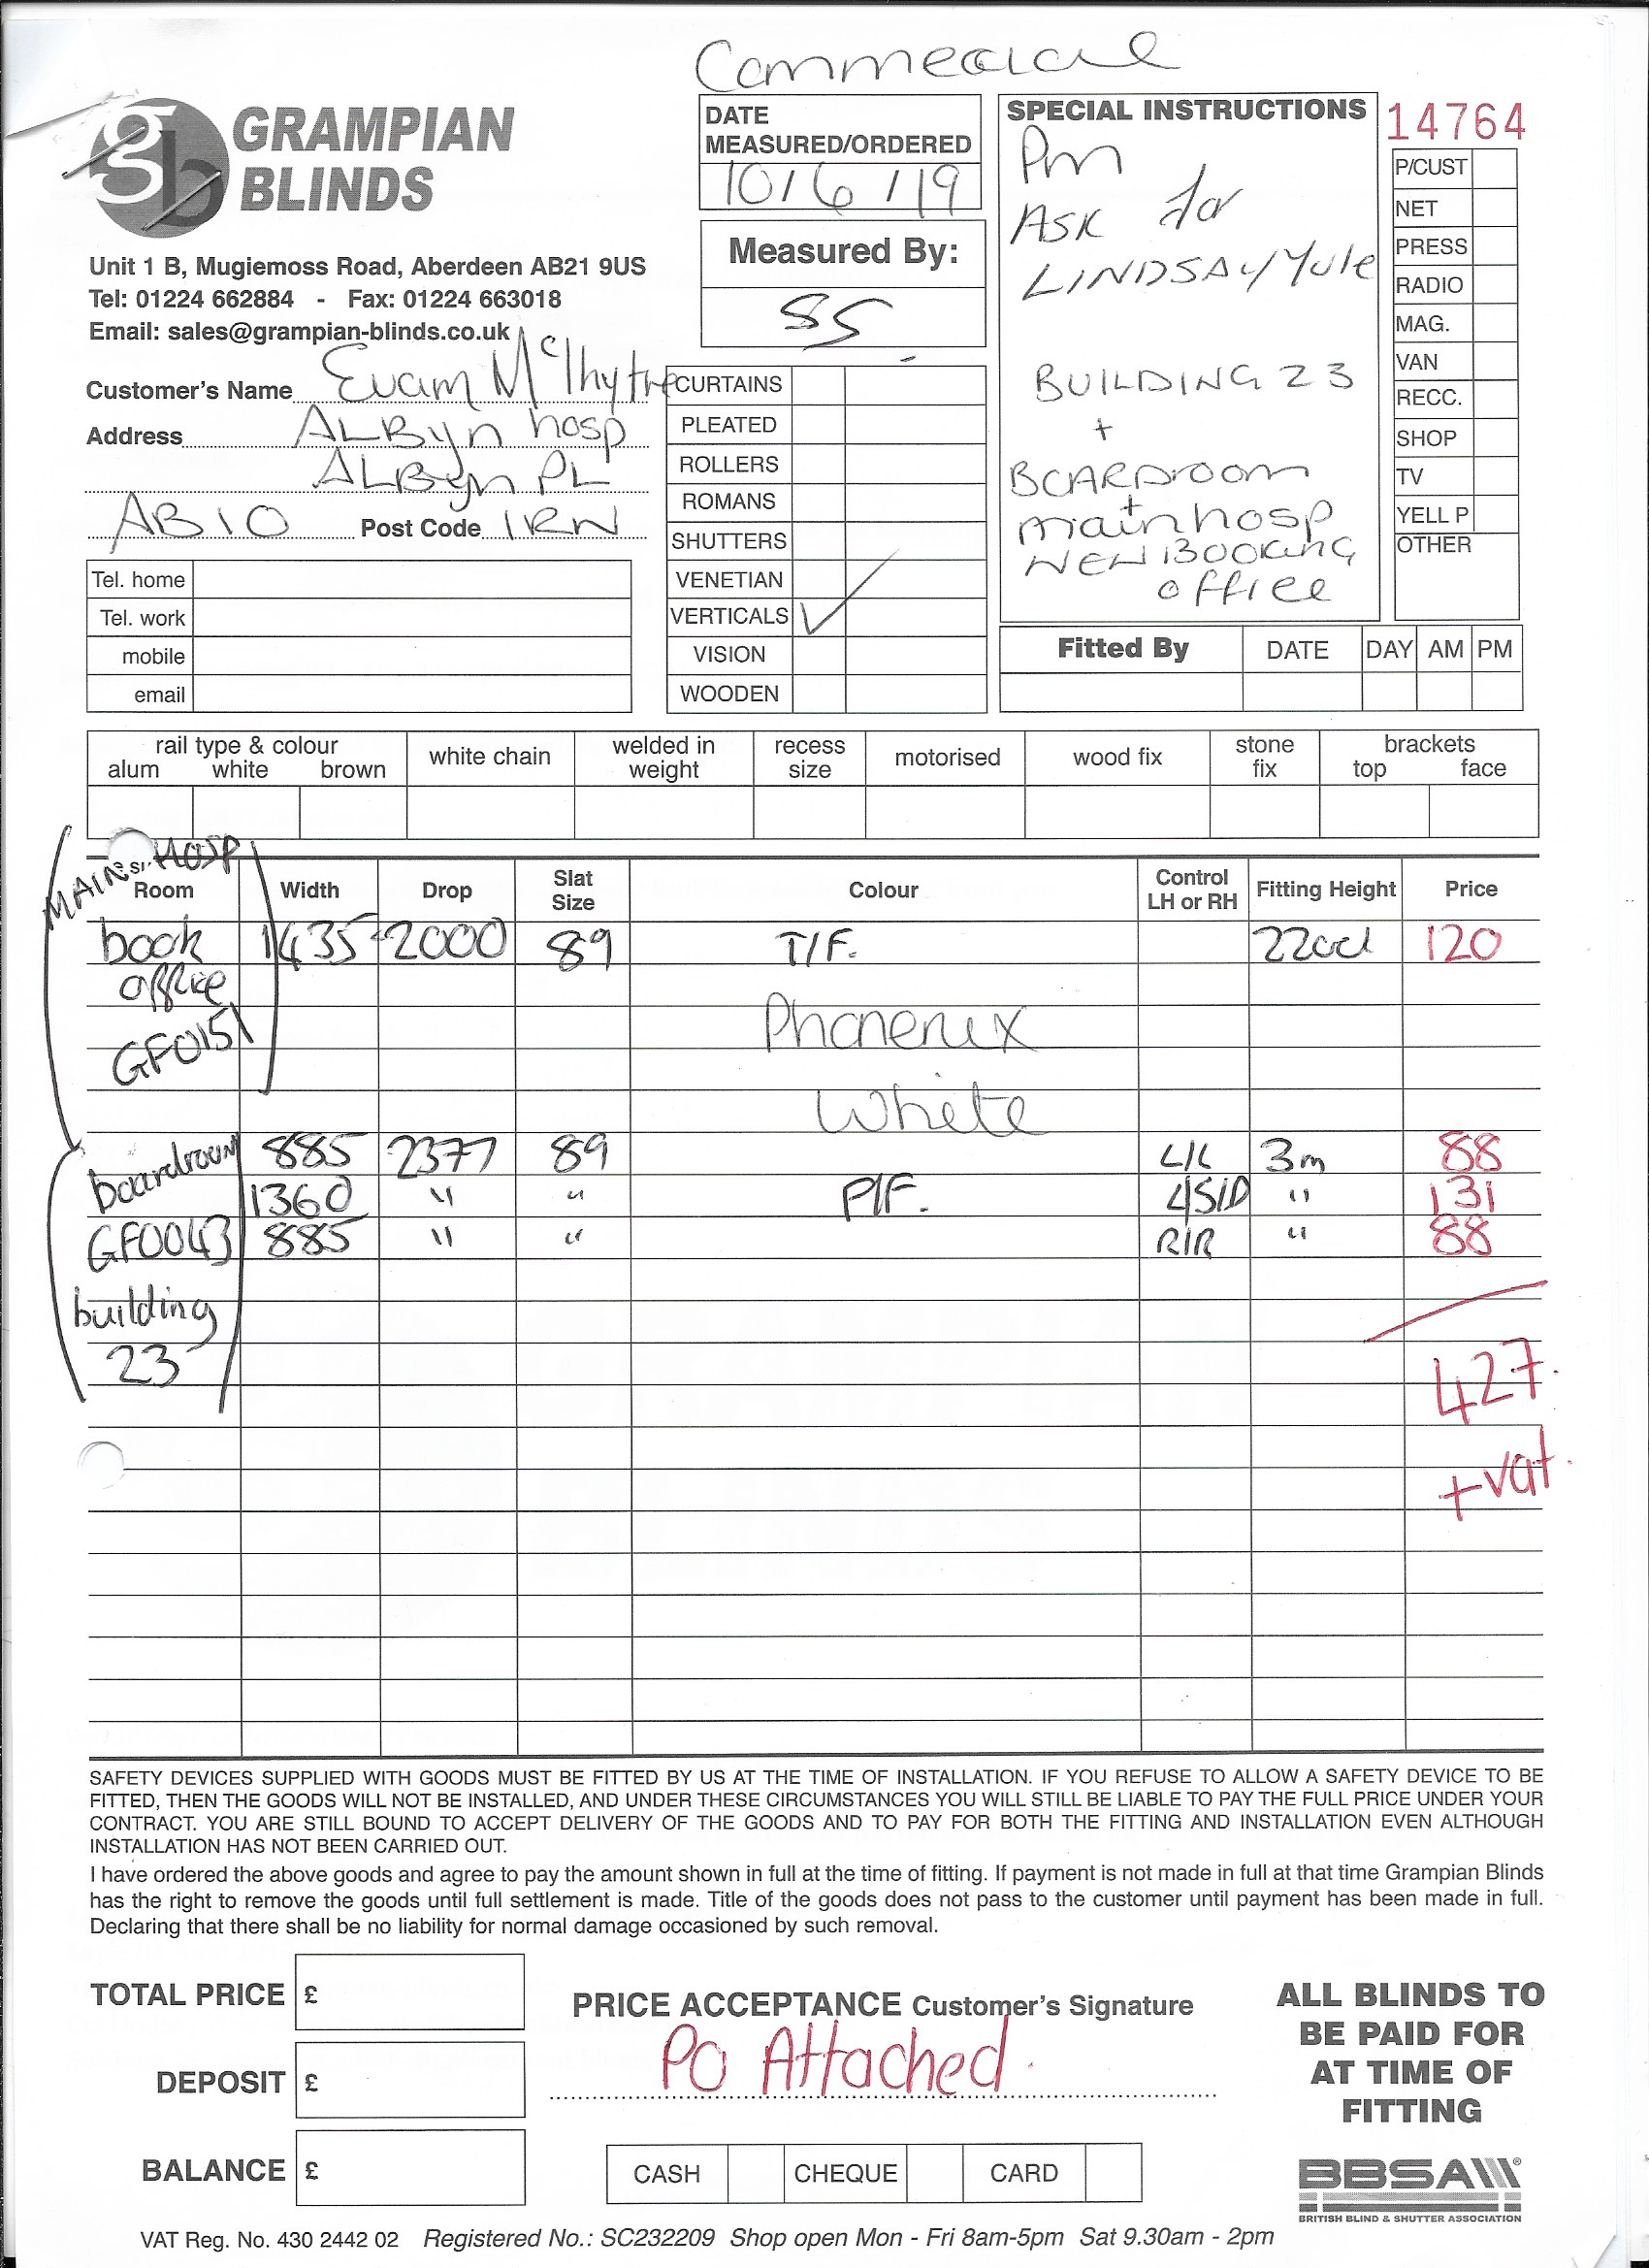 Commercial
GRAMPIAN
BLINDS
Unit 1 B, Mugiemoss Road, Aberdeen AB21 9US
Tel: 01224 662884 - Fax: 01224 663018
Email: sales@grampian-blinds.co.uk
DATE
MEASURED/ORDERED
10/6/19
Measured By:
SS
SPECIAL INSTRUCTIONS
Pm
ASK for
LINDSAY Yule
BUILDING 23
+
BOARDROOM
+
main hosp
NEW BOOKING
office
14764
P/CUST
NET
PRESS
RADIO
MAG.
VAN
RECC.
SHOP
TV
YELL P
OTHER
Customer's Name
Address ALByn hosp
ALByn PL
AB10 Post Code 1RW
Tel. home
Tel. work
mobile
email
CURTAINS
PLEATED
ROLLERS
ROMANS
SHUTTERS
VENETIAN
VERTICALS ✓
VISION
WOODEN
Fitted By DATE DAY AM PM
rail type & colour
alum white brown
white chain
welded in
weight
recess
size
motorised
wood fix
stone
fix
brackets
top face
MAIN HOSP
Room Width Drop Slat Size Colour Control LH or RH Fitting Height Price
book 1435 2000 89 T/F. 120
office
GF0151
Phoenix
White
boardroom 885 2377 89 L/L 3m 88
1360 " " P/F. " 131
GF0043 885 " " R/R " 88
building
23
427.
+ vat.
SAFETY DEVICES SUPPLIED WITH GOODS MUST BE FITTED BY US AT THE TIME OF INSTALLATION. IF YOU REFUSE TO ALLOW A SAFETY DEVICE TO BE
FITTED, THEN THE GOODS WILL NOT BE INSTALLED, AND UNDER THESE CIRCUMSTANCES YOU WILL STILL BE LIABLE TO PAY THE FULL PRICE UNDER YOUR
CONTRACT. YOU ARE STILL BOUND TO ACCEPT DELIVERY OF THE GOODS AND TO PAY FOR BOTH THE FITTING AND INSTALLATION EVEN ALTHOUGH
INSTALLATION HAS NOT BEEN CARRIED OUT.
I have ordered the above goods and agree to pay the amount shown in full at the time of fitting. If payment is not made in full at that time Grampian Blinds
has the right to remove the goods until full settlement is made. Title of the goods does not pass to the customer until payment has been made in full.
Declaring that there shall be no liability for normal damage occasioned by such removal.
TOTAL PRICE £
DEPOSIT £
BALANCE £
PRICE ACCEPTANCE Customer's Signature
PO Attached.
CASH CHEQUE CARD
ALL BLINDS TO
BE PAID FOR
AT TIME OF
FITTING
BBSA
BRITISH BLIND & SHUTTER ASSOCIATION
VAT Reg. No. 430 2442 02 Registered No.: SC232209 Shop open Mon - Fri 8am-5pm Sat 9.30am - 2pm